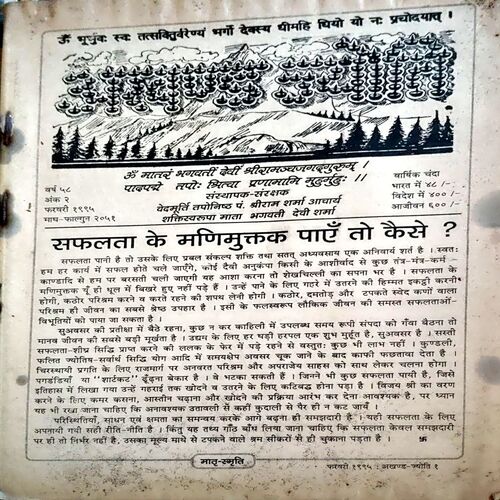 ॐ भूर्भुवः स्वः तत्सवितुर्वरेण्यं भर्गो देवस्य धीमहि धियो यो नः प्रचोदयात् ।
अखण्ड ज्योति
ॐ मातरं भगवतीं देवीं श्रीरामञ्चजगद्गुरुम् ।
पादपद्मे तयोः श्रित्वा प्रणमामि मुहुर्मुहुः ।।
संस्थापक-संरक्षक
वेदमूर्ति तपोनिष्ठ पं. श्रीराम शर्मा आचार्य
शक्तिस्वरूपा माता भगवती देवी शर्मा
वर्ष ५८
अंक २
फरवरी १९९५
माघ-फाल्गुन २०५१
वार्षिक चंदा
भारत में ४८ /-
विदेश में ४०० /-
आजीवन ६०० /-
सफलता के मणिमुक्तक पाएँ तो कैसे ?
सफलता पानी है तो उसके लिए प्रबल संकल्प शक्ति तथा सतत् अध्यवसाय एक अनिवार्य शर्त है । स्वतः
हम हर कार्य में सफल होते चले जाएँगे, कोई दैवी अनुकंपा किसी के आशीर्वाद से कुछ तंत्र-मंत्र-कर्म-
काण्डादि से हम पर बरसती चली जाएगी यह आशा करना तो शेखचिल्ली का सपना भर है । सफलता के
मणिमुक्तक यूँ ही धूल में बिखरे हुए नहीं पड़े हैं । उन्हें पाने के लिए गहरे में उतरने की हिम्मत इकट्ठी करनी
होगी, कठोर परिश्रम करने व करते रहने की शपथ लेनी होगी । कठोर, दमतोड़ और टपकते स्वेद कणों वाला
परिश्रम ही जीवन का सबसे श्रेष्ठ उपहार है । इसी के फलस्वरूप लौकिक जीवन की समस्त सफलताओं-
विभूतियों को पाया जा सकता है ।
सुअवसर की प्रतीक्षा में बैठे रहना, कुछ न कर काहिली में उपलब्ध समय रूपी संपदा को गँवा बैठना तो
मानव जीवन की सबसे बड़ी मूर्खता है । उद्यम के लिए हर घड़ी हरपल एक शुभ मुहूर्त है, सुअवसर है । सस्ती
सफलता-शीघ्र सिद्धि प्राप्त करने की ललक के फेर में पड़े रहने से वस्तुतः कुछ भी लाभ नहीं । कुण्डली,
फलित ज्योतिष-सर्वार्थ सिद्धि योग आदि में समयक्षेप अवसर चूक जाने के बाद काफी पछतावा देता है ।
चिरस्थायी प्रगति के लिए राजमार्ग पर अनवरत परिश्रम और अपराजेय साहस को साथ लेकर चलना होगा ।
पगडंडियाँ या "शार्टकट" ढूँढ़ना बेकार है । वे भटका सकती हैं । जिनने भी कुछ सफलता पायी है, जिसे
इतिहास में लिखा गया उन्हें गहराई तक खोदने व उतरने के लिए कटिबद्ध होना पड़ा है । विजय श्री का वरण
करने के लिए कमर कसना, आस्तीन चढ़ाना और खोदने की प्रक्रिया आरंभ कर देना आवश्यक है, पर ध्यान
यह भी रखा जाना चाहिए कि अनावश्यक उतावली से कहीं कुदाली से पैर ही न कट जायँ ।
परिस्थितियों, साधन एवं क्षमता का समन्वय करके आगे बढ़ना ही समझदारी है । यही सफलता के लिए
अपनायी गयी सही रीति-नीति है । किंतु यह तथ्य गाँठ बाँध लिया जाना चाहिए कि सफलता केवल समझदारी
पर ही तो निर्भर नहीं है, उसका मूल्य माथे से टपकने वाले श्रम सीकरों से ही चुकाना पड़ता है ।
मातृ-स्मृति
फरवरी १९९५ : अखण्ड-ज्योति १